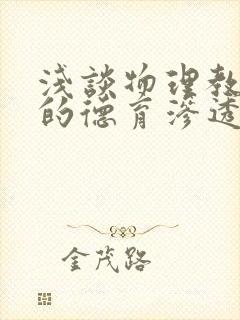 浅谈物理教
的德育渗透
金茂路